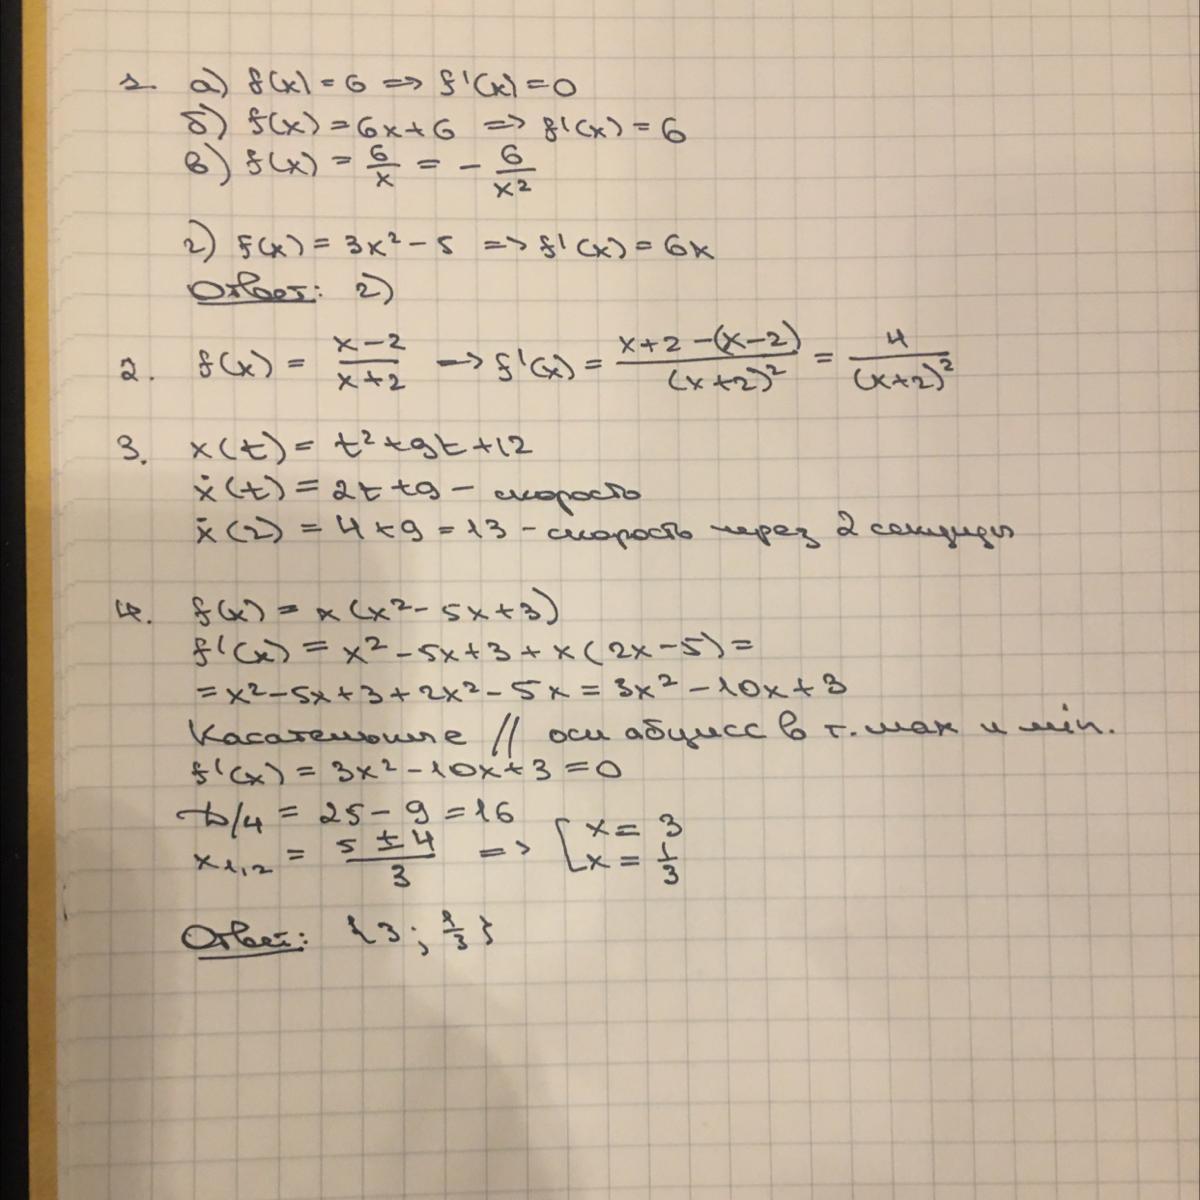 1. а) f(x) = 6 => f'(x) = 0
б) f(x) = 6x + 6 => f'(x) = 6
в) f(x) = 6/x = - 6/x²
г) f(x) = 3x² - 5 => f'(x) = 6x
Ответ: г)
2. f(x) = (x-2)/(x+2) -> f'(x) = (x+2-(x-2))/(x+2)² = 4/(x+2)²
3. x(t) = t² + 9t + 12
ẋ(t) = 2t + 9 - скорость
ẋ(2) = 4 + 9 = 13 - скорость через 2 секунды
4. f(x) = x(x² - 5x + 3)
f'(x) = x² - 5x + 3 + x(2x - 5) =
= x² - 5x + 3 + 2x² - 5x = 3x² - 10x + 3
Касательные // оси абцисс в т. max и min.
f'(x) = 3x² - 10x + 3 = 0
D/4 = 25 - 9 = 16
x1,2 = (5 ± 4)/3 => [ x = 3
x = 1/3
Ответ: {3; 1/3}